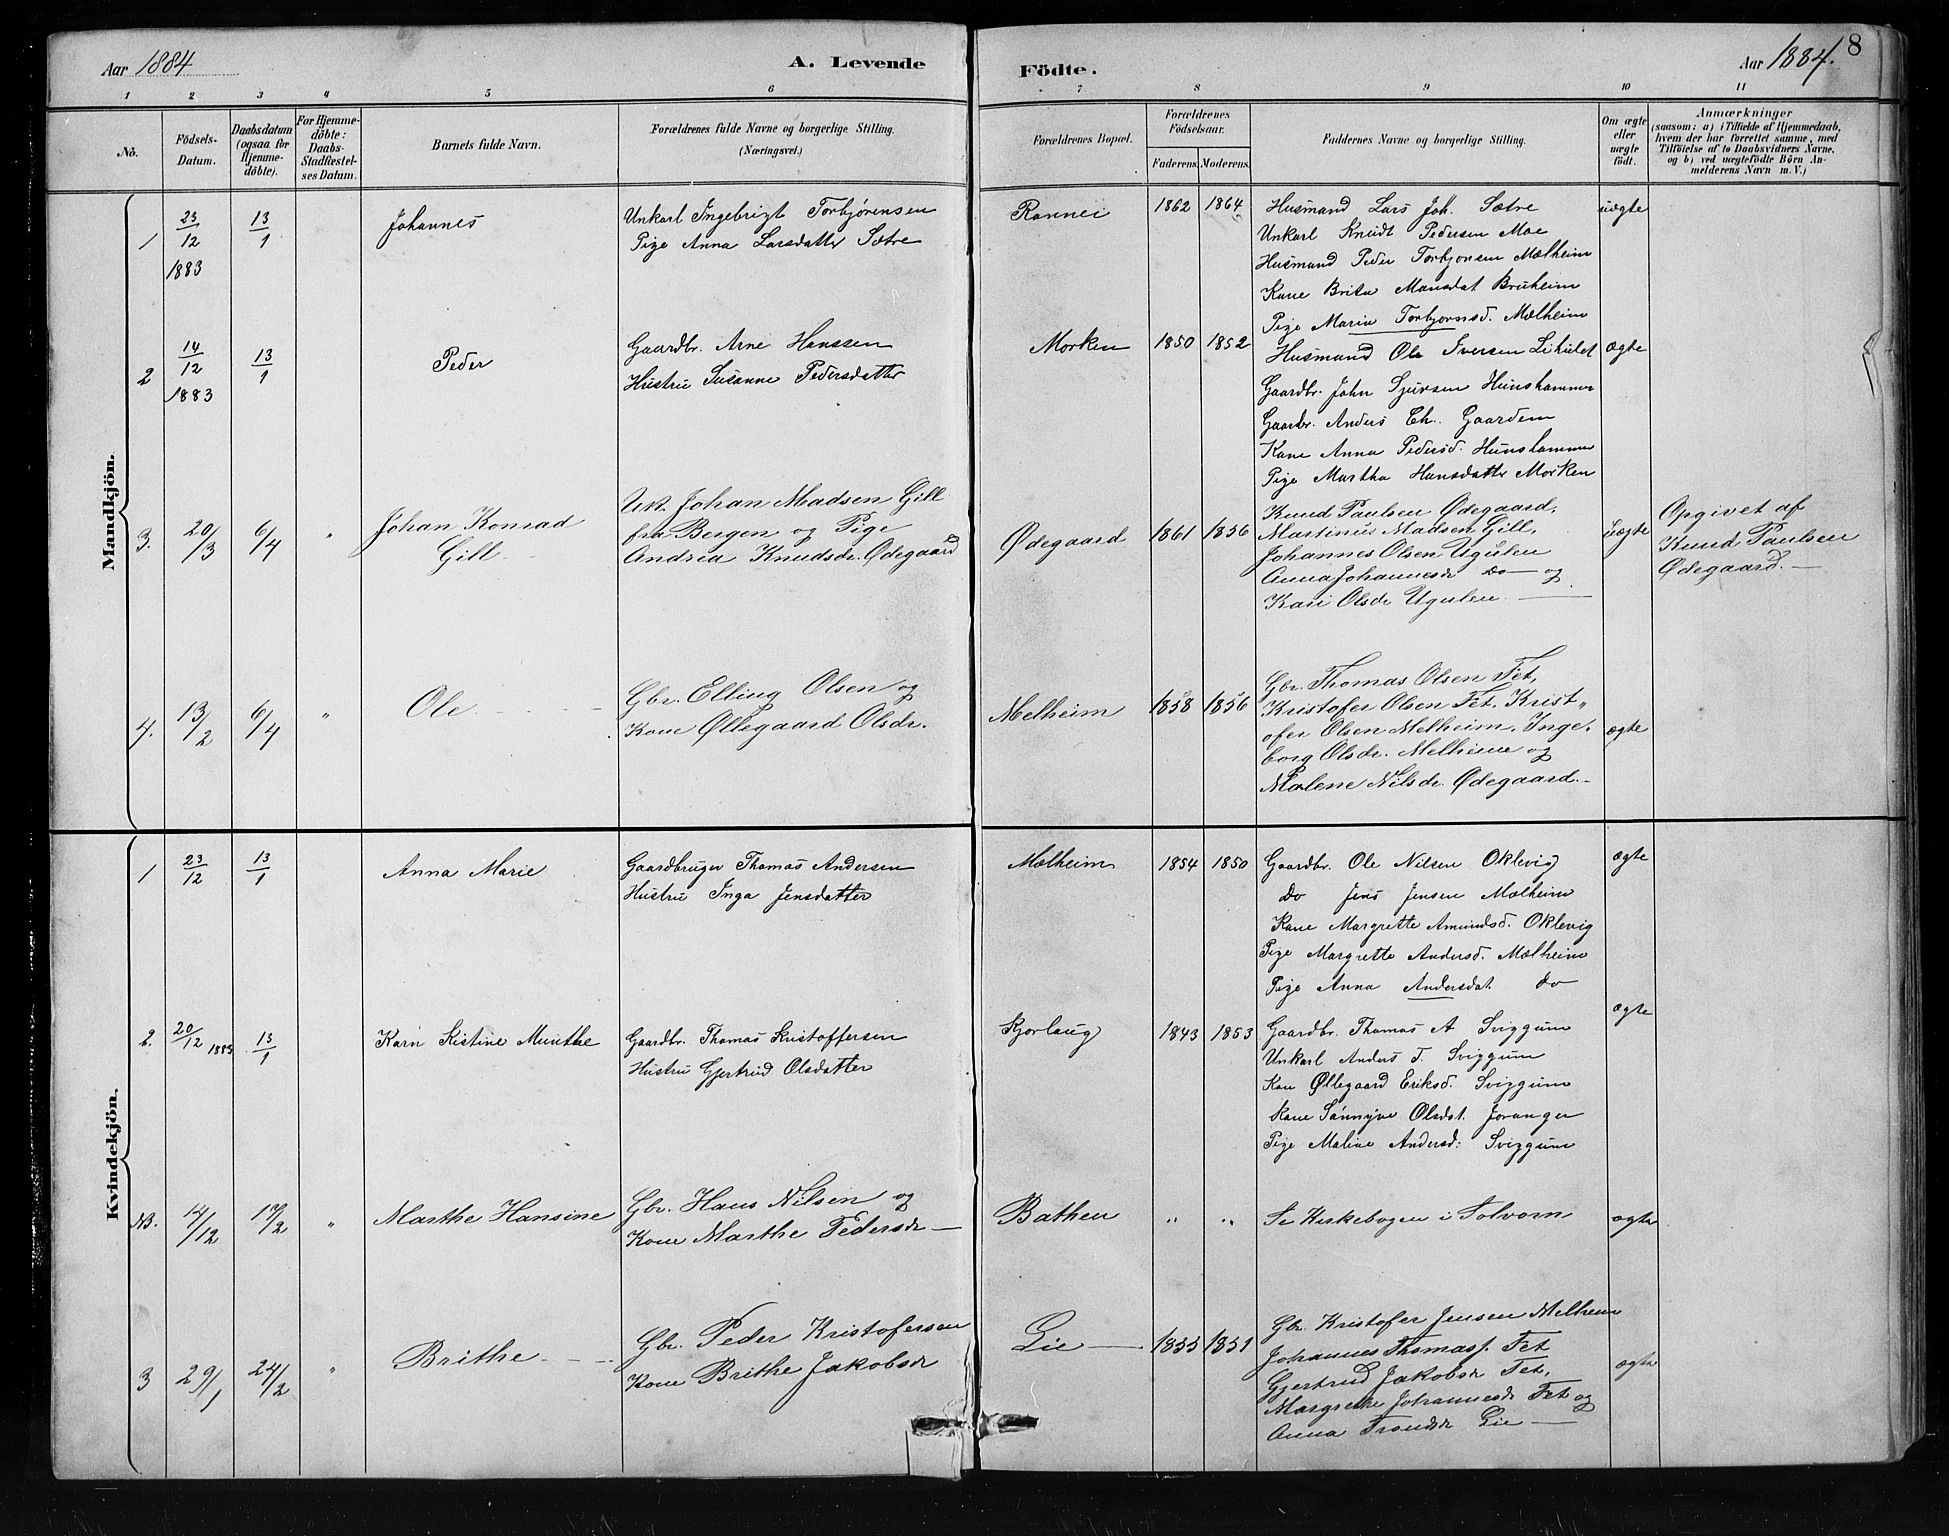 Aar 1884
A. Levende
Födte.
Aar 1884.
8
1 2 3 4 5 6 7 8 9 10 11
No.
Födsels-Datum.
Daabsdatum (ogsaa for Hjemme-döbte).
For Hjemme-döbte: Daabs-Stadfæstel-ses Datum.
Barnets fulde Navn.
Forældrenes fulde Navne og borgerlige Stilling. (Næringsvei.)
Forældrenes Bopæl.
Forældrenes Födselsaar.
Faderens. Moderens.
Faddernes Navne og borgerlige Stilling.
Om ægte eller uægte födt.
Anmærkninger
(saasom: a) i Tilfælde af Hjemmedaab,
hvem der har forrettet samme, med
Tilföielse af to Daabsvidners Navne,
og b) ved uægtefödte Börn An-
melderens Navn m. V.)
Mandkjön.
1 23/12 1883 13/1 Johannes
Unkarl Ingebrigt Torbjørensen
Pige Anna Larsdatter Sætre
Rønnei 1862 1864
Husmand Lars Joh. Sætre
Unkarl Knudt Pedersen Moe
Husmand Peder Torbjorsen Mælheim
Kone Brita Monsdat Bruheim
Pige Maria Torbjornsd. Mælheim
uægte
2 14/12 1883 13/1 Peder
Gaardbr. Arne Hanssen
Hustru Susanne Pedersdatter
Morken 1850 1852
Husmand Ole Iversen Lihulet
Gaardbr. John Sjursen Hunshammer
Gaardbr. Anders Ch. Gaarden
Kone Anna Pedersd. Hunshammer
Pige Martha Hansdatter Morken
ægte
3. 20/3 6/4 " Johan Konrad
Gill
Uk. Johan Madsen Gill
fra Bergen og Pige
Andrea Knudsdr. Ødegaard
Ødegaard 1861 1856
Knud Paulsen Ødegaard,
Martinus Madsen Gill,
Johannes Olsen Ugulen
Anna Johannesdr Do og
Kari Olsdr Ugulen
uægte
Opgivet af
Knud Paulsen
Ødegaard.
4. 13/2 6/4 " Ole
Gbr. Elling Olsen og
Kone Øllegaard Olsdr.
Melheim 1858 1856
Gbr. Thomas Olsen Fet,
Kristofer Olsen Fet, Krist„
ofer Olsen Melheim, Inge„
borg Olsdr. Melheim og
Malene Nilsdr. Ødegaard.
ægte
Kvindekjön.
1 23/12 13/1 Anna Marie
Gaardbruger Thomas Andersen
Hustru Inga Jensdatter
Mælheim 1854 1850
Gaardbr. Ole Nilsen Oklevig
Do Jens Jensen Mælheim
Kone Margrette Amundsd. Oklevig
Pige Margrette Andersd. Mælheim
Pige Anna Andersdat. Do
ægte
2. 20/12 1883 13/1 Karn Kistine Munthe
Gaardbr. Thomas Kristoffersen
Hustru Gjertrud Olsdatter
Kjorlaug 1843 1853
Gaardbr. Thomas A Sviggum
Unkarl Anders T. Sviggum
Kon Øllegaard Eriksd. Sviggum
Kone Sønnøve Olsdat. Joranger
Pige Maline Andersd: Sviggum
ægte
NB. 14/12 17/2 " Marthe Hansine
Gbr. Hans Nilsen og
Kone Marthe Pedersdr
Bathen " "
Se Kirkebogen i Solvorn
ægte
3 29/1 24/2 " Brithe
Gbr. Peder Kristofersen
Kone Brithe Jakobsdr
Lie 1855 1851
Gbr. Kristofer Jensen Melheim
Johannes Thomass. Fet
Gjertrud Jakobsdr Fet,
Margrethe Johannesdr Fet og
Anna Trondsdr Lie
ægte